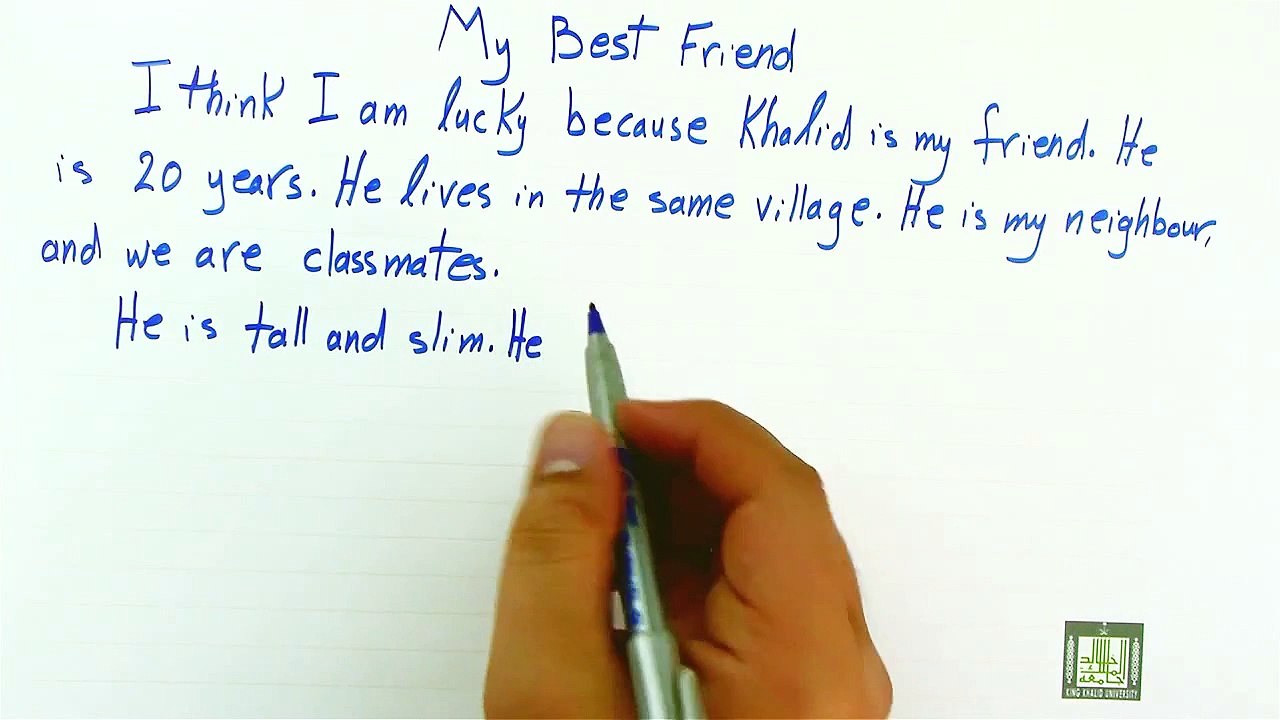 My Best Friend
I think I am lucky because Khalid is my friend. He
is 20 years. He lives in the same village. He is my neighbour,
and we are classmates.
He is tall and slim. He
جامعة الملك خالد
KING KHALID UNIVERSITY